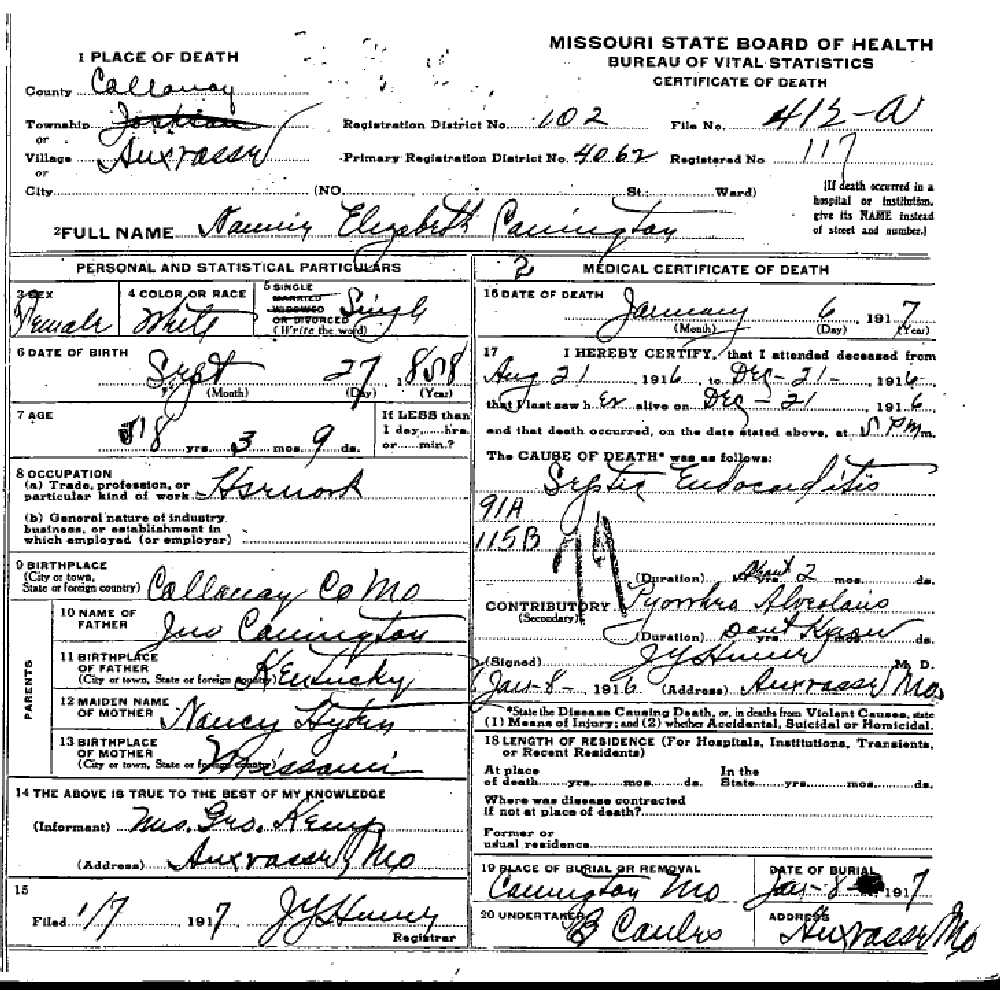 MISSOURI STATE BOARD OF HEALTH
BUREAU OF VITAL STATISTICS
CERTIFICATE OF DEATH
1 PLACE OF DEATH
County Callaway
Township
or
Village Auxvasse
or
City (NO. St.: Ward)
Registration District No. 102 File No. 413-A
Primary Registration District No. 4062 Registered No 117
(If death occurred in a
hospital or institution,
give its NAME instead
of street and number.)
2 FULL NAME Nannie Elizabeth
PERSONAL AND STATISTICAL PARTICULARS
3 SEX Female
4 COLOR OR RACE White
5 SINGLE
MARRIED
WIDOWED
OR DIVORCED
(Write the word)
Single
6 DATE OF BIRTH
Sept 27 1858
(Month) (Day) (Year)
7 AGE
58 yrs. 3 mos. 9 ds.
If LESS than
1 day hrs.
or min.?
8 OCCUPATION
(a) Trade, profession, or
particular kind of work Hswork
(b) General nature of industry,
business, or establishment in
which employed (or employer)
9 BIRTHPLACE
(City or town,
State or foreign country) Callaway Co Mo
PARENTS
10 NAME OF
FATHER
Jno
11 BIRTHPLACE
OF FATHER
(City or town, State or foreign country) Kentucky
12 MAIDEN NAME
OF MOTHER Nancy
13 BIRTHPLACE
OF MOTHER
(City or town, State or foreign country) Missouri
14 THE ABOVE IS TRUE TO THE BEST OF MY KNOWLEDGE
(Informant) Mrs. Geo. Kemp
(Address) Auxvasse Mo
15
Filed 1/7 1917
Registrar
2
MEDICAL CERTIFICATE OF DEATH
16 DATE OF DEATH
January 6 1917
(Month) (Day) (Year)
17 I HEREBY CERTIFY, that I attended deceased from
Aug 21, 1916, to Dec-21-, 1916,
that I last saw her alive on Dec-21, 1916,
and that death occurred, on the date stated above, at 5 Pm m.
The CAUSE OF DEATH* was as follows:
Septic Endocarditis
91A
115B
79
(Duration) About yrs. 2 mos. ds.
CONTRIBUTORY Pyorrhea Alveolaris
(Secondary)
(Duration) dont Know yrs. ds.
(Signed) M. D.
Jan-8-, 1916 (Address) Auxvasse Mo
*State the Disease Causing Death, or, in deaths from Violent Causes, state
(1) Means of Injury; and (2) whether Accidental, Suicidal or Homicidal.
18 LENGTH OF RESIDENCE (For Hospitals, Institutions, Transients,
or Recent Residents)
At place
of death yrs. mos. ds.
In the
State yrs. mos. ds.
Where was disease contracted
if not at place of death?
Former or
usual residence
19 PLACE OF BURIAL OR REMOVAL
Mo
DATE OF BURIAL
Jan-8- 1917
20 UNDERTAKER
ADDRESS
Auxvasse Mo